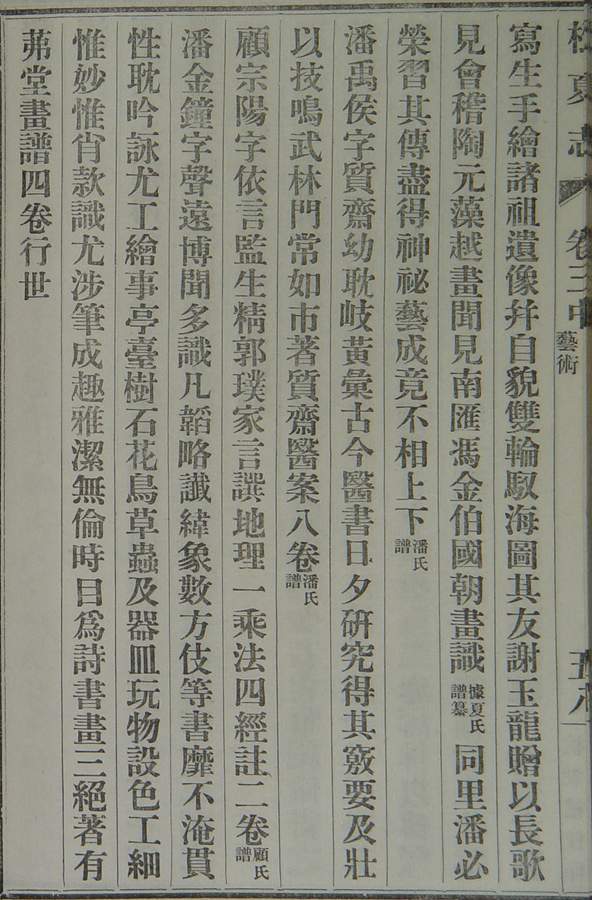 桂夏志 卷三中 藝術 五八
寫生手繪諸祖遺像幷自貌雙輪馭海圖其友謝玉龍贈以長歌
見會稽陶元藻越畫聞見南匯馮金伯國朝畫識據夏氏譜纂同里潘必
榮習其傳盡得神祕藝成竟不相上下潘氏譜
潘禹侯字質齋幼耽岐黃彙古今醫書日夕硏究得其竅要及壯
以技鳴武林門常如市著質齋醫案八卷潘氏譜
顧宗陽字依言監生精郭璞家言譔地理一乘法四經註二卷顧氏譜
潘金鐘字聲遠博聞多識凡韜略讖緯象數方伎等書靡不淹貫
性耽吟詠尤工繪事亭臺樹石花鳥草蟲及器皿玩物設色工細
惟妙惟肖款識尤涉筆成趣雅潔無倫時目爲詩書畫三絕著有
茀堂畫譜四卷行世